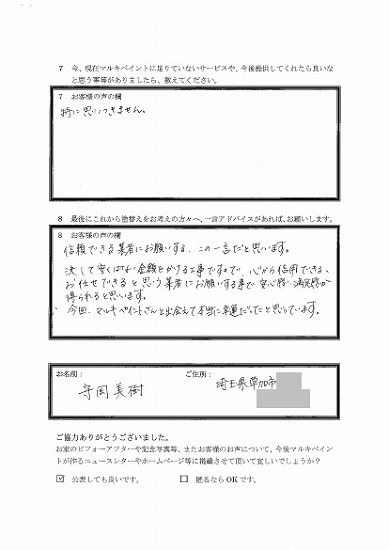 7 今、現在マルキペイントに足りていないサービスや、今後提供してくれたら良いな
と思う事等がありましたら、教えてください。
7 お客様の声の欄
特に思いつきません。
8 最後にこれから塗替えをお考えの方々へ、一言アドバイスがあれば、お願いします。
8 お客様の声の欄
信頼できる業者にお願いする、この一言だと思います。
決して安くはない金額をかける工事ですので、心から信用できる、
お任せできると思う業者にお願いする事で安心感、満足感が
得られると思います。
今回、マルキペイントさんと出会えて本当に幸運だったと思っています。
お名前：
ご住所：
寺岡美樹
埼玉県草加市
ご協力ありがとうございました。
お家のビフォーアフターや記念写真等、またお客様のお声について、今後マルキペイン
トが作るニュースレターやホームページ等に掲載させて頂いて宜しいでしょうか？
☑ 公表しても良いです。 □ 匿名ならOKです。